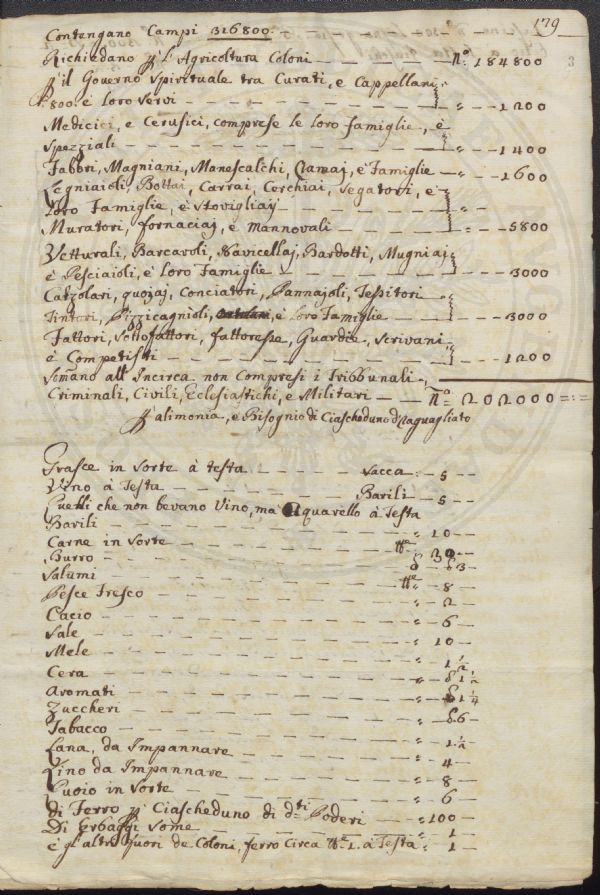 179
3
Contengano Campi 316800.
Richiedano p L'Agricoltura Coloni — — — — — nº 184800
p il Governo Spirituale tra Curati, e Cappellani
800. è loro Servi — — — — — — — — 1200
Medicici, e Cerusici, comprese le loro famiglie, è
Speziali — — — — — — — — 1400
Fabbri, Magniani, Manescalchi, Ramaj, è Famiglie — 1600
Legniaioli, Bottai, Carrai, Cerchiai, Segatori, e
loro Famiglie, è Stovigliaj — — — — —
Muratori, fornaciaj, e mannovali — — — — 5800
Vetturali, Barcaroli, Navicellaj, Bardotti, Mugniaj
è Pesciaioli, è loro Famiglie — — — — — 3000
Calzolari, quojaj, Conciatori, Pannajoli, Tessitori
Tintori, Pizzicagnioli, è loro Famiglie — — — 3000
Fattori, Sottofattori, fattoresse, Guardie, Scrivani
è Computisti — — — — — — — — 1200
Somano all'Incirca non Compresi i Tribbunali,
Criminali, Civili, Eclesiastichi, e Militari — — Nº 202000 =:=
p alimonia, e Bisognio di Ciascheduno Raguagliato
Grasce in Sorte à testa — — — — — Sacca — 5 —
Vino à Testa — — — — — — — Barili — 5 —
Quelli che non bevano Vino, ma Aquarello à Testa
Barili — — — — — — — — — 10 —
Carne in Sorte — — — — — — — 30 —
Burro — — — — — — — — 3 —
Salumi — — — — — — — — 8 —
Pesce fresco — — — — — — — 2 —
Cacio — — — — — — — — 6 —
Sale — — — — — — — — 10 —
Mele — — — — — — — — 1 ½
Cera — — — — — — — — 1 ½
Aromati — — — — — — — — 1 ¼
Zuccheri — — — — — — — — 6 —
Tabacco — — — — — — — — 1 ½
Lana, da Impannare — — — — — — 4 —
Lino da Impannare — — — — — — 8 —
Cuoio in Sorte — — — — — — — 6 —
di Ferro p Ciascheduno di dti Poderi — — 100 —
Di Erbaggi Some — — — — — — 1 —
è gl'altri fuori de Coloni, ferro Circa 1. à Testa — 1 —